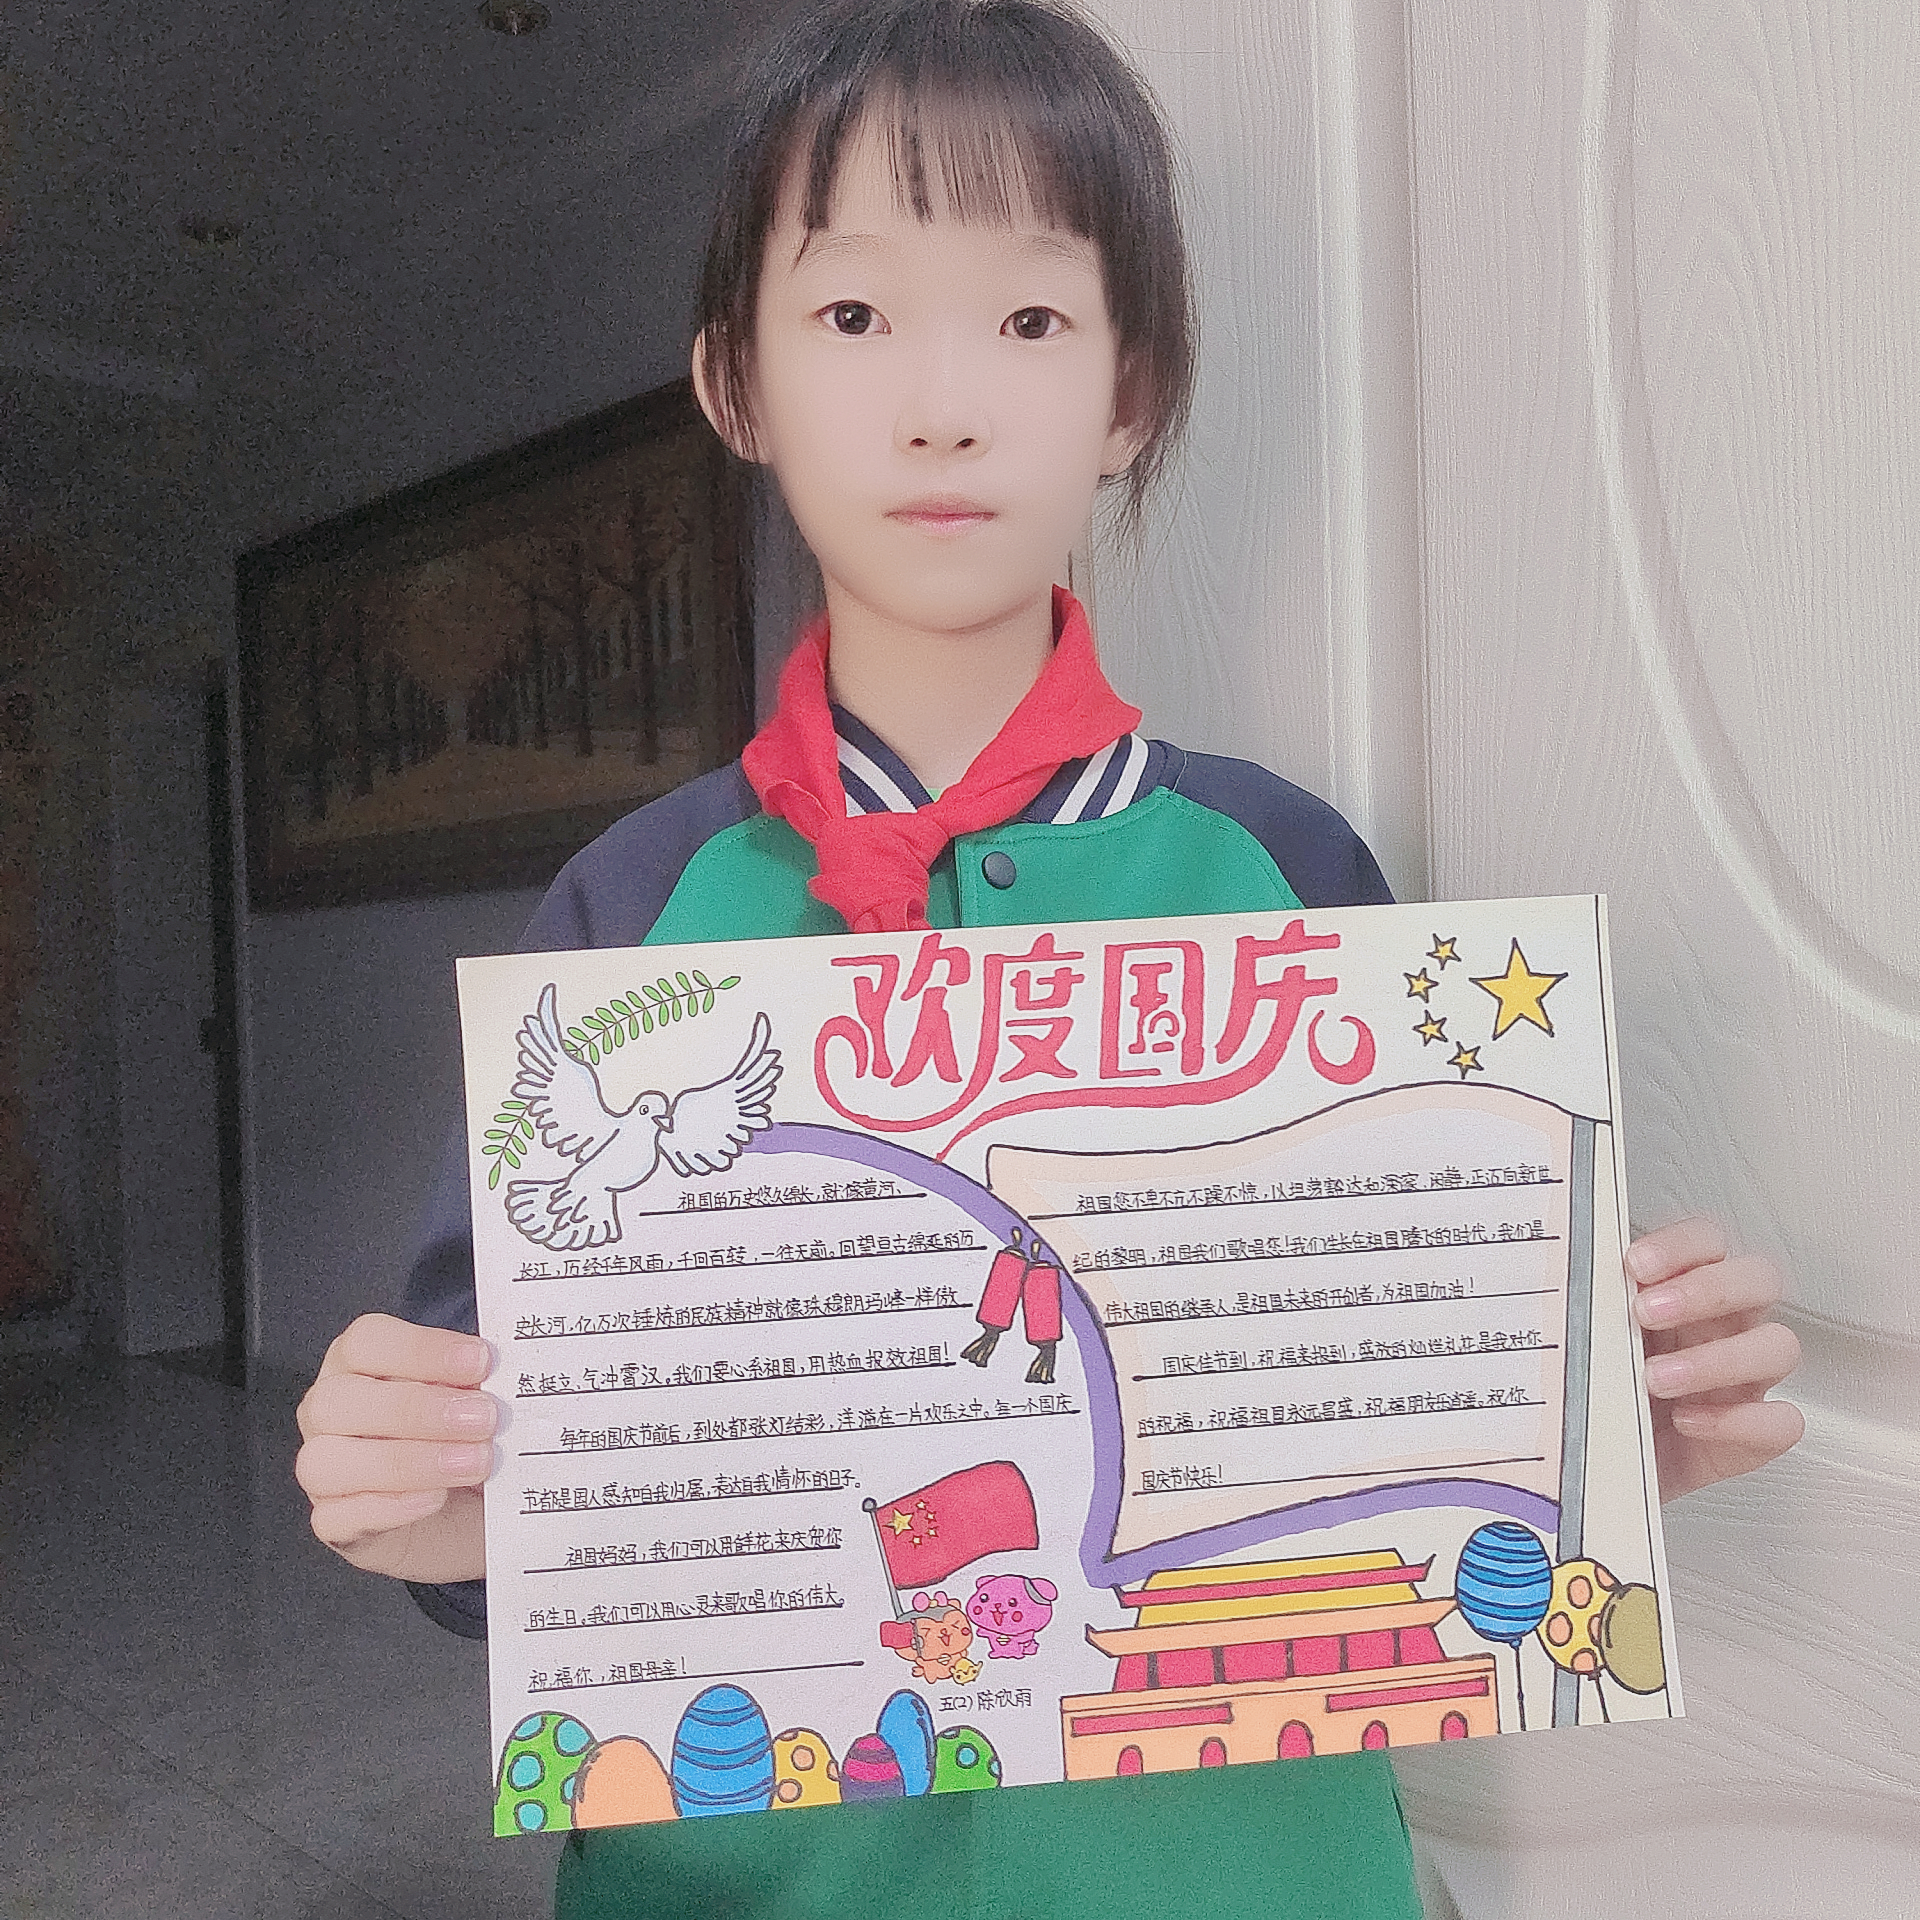 欢度国庆
祖国的历史悠久绵长,就像黄河、
长江,历经千年风雨,千回百转,一往无前。回望亘古绵延的历
史长河,亿万次锤炼的民族精神就像珠穆朗玛峰一样傲
然挺立、气冲霄汉。我们要心系祖国,用热血报效祖国!
每年的国庆节前后,到处都张灯结彩,洋溢在一片欢乐之中。每一个国庆
节都是国人感知自我归属,表达自我情怀的日子。
祖国妈妈,我们可以用鲜花来庆贺你
的生日。我们可以用心灵来歌唱你的伟大。
祝福你,祖国母亲!
五(2) 陈欣雨
祖国您不卑不亢不躁不惊,以坦荡豁达和深邃、闲静,正迈向新世
纪的黎明,祖国我们歌唱您!我们生长在祖国腾飞的时代,我们是
伟大祖国的继承人,是祖国未来的开创者,为祖国加油!
国庆佳节到,祝福来报到,盛放的灿烂礼花是我对你
的祝福,祝福祖国永远昌盛,祝福朋友乐逍遥。祝你
国庆节快乐!